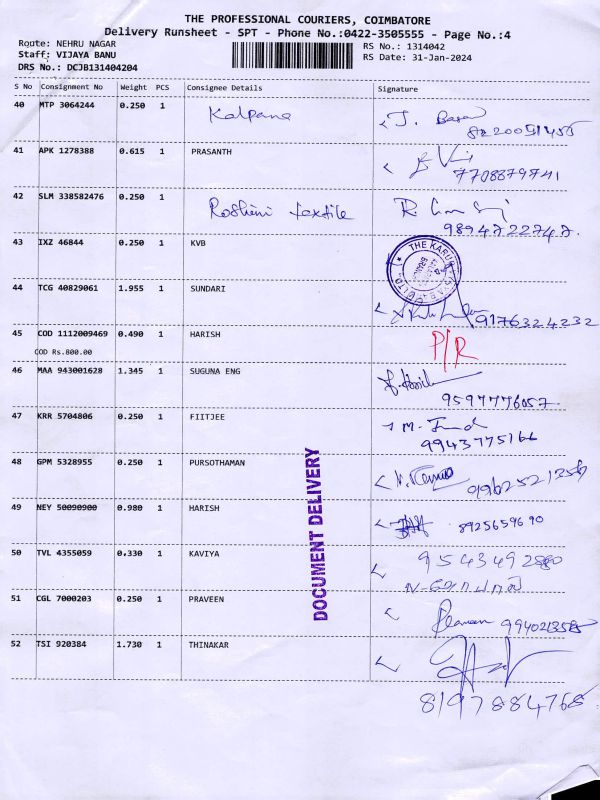 THE PROFESSIONAL COURIERS, COIMBATORE
Delivery Runsheet - SPT - Phone No.:0422-3505555 - Page No.:4
Route: NEHRU NAGAR RS No.: 1314042
Staff: VIJAYA BANU RS Date: 31-Jan-2024
DRS No.: DCJB131404204
S No Consignment No Weight PCS Consignee Details Signature
40 MTP 3064244 0.250 1 Kalpana
41 APK 1278388 0.615 1 PRASANTH
7708879741
42 SLM 338582476 0.250 1 Roshini textile
9894722747.
43 IXZ 46844 0.250 1 KVB
44 TCG 40829061 1.955 1 SUNDARI
9176324232
45 COD 1112009469 0.490 1 HARISH P/R
COD Rs.800.00
46 MAA 943001628 1.345 1 SUGUNA ENG
9597776057.
47 KRR 5704806 0.250 1 FIITJEE
9943775166
48 GPM 5328955 0.250 1 PURSOTHAMAN
49 NEY 50090900 0.980 1 HARISH 8925659690
50 TVL 4355059 0.330 1 KAVIYA
51 CGL 7000203 0.250 1 PRAVEEN
52 TSI 920384 1.730 1 THINAKAR
8197884768
DOCUMENT DELIVERY